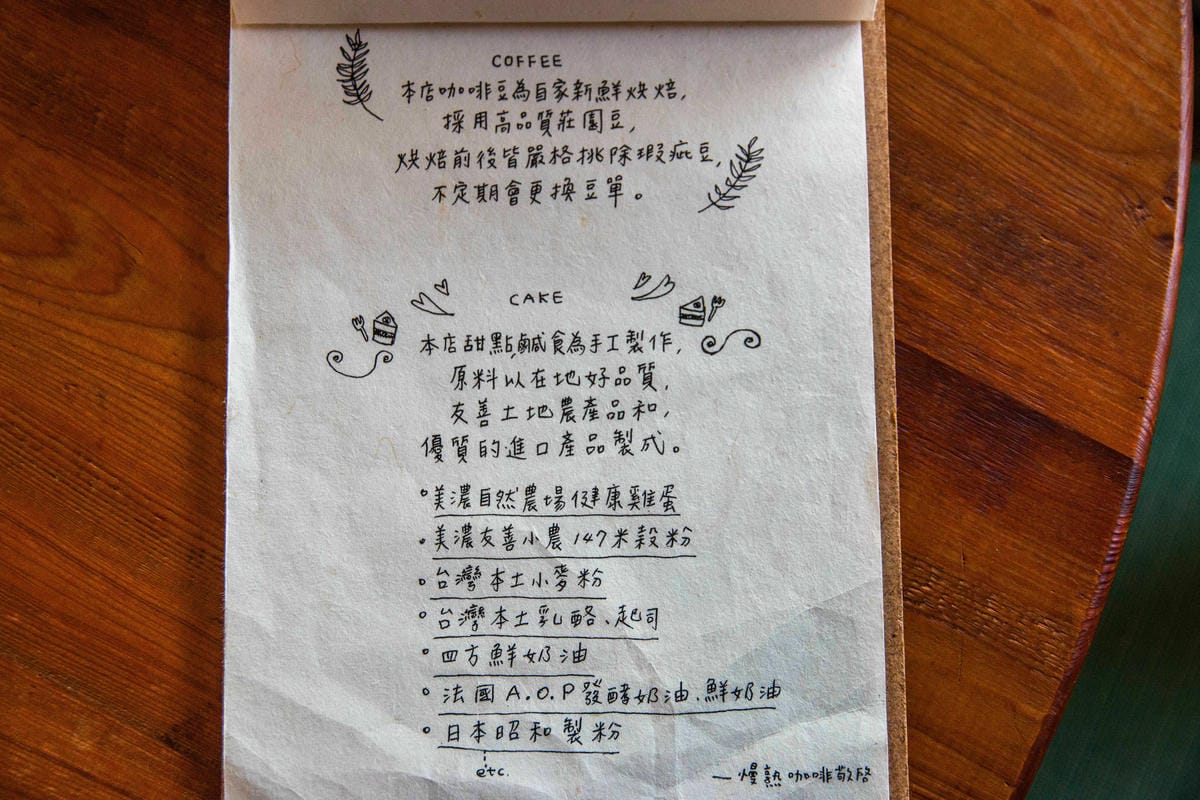 COFFEE
本店咖啡豆為自家新鮮烘焙,
採用高品質莊園豆,
烘焙前後皆嚴格挑除瑕疵豆,
不定期會更換豆單。
CAKE
本店甜點,鹹食為手工製作,
原料以在地好品質,
友善土地農產品和,
優質的進口產品製成。
°美濃自然農場健康雞蛋
°美濃友善小農147米穀粉
°台灣本土小麥粉
°台灣本土乳酪、起司
°四方鮮奶油
°法國A.O.P發酵奶油、鮮奶油
°日本昭和製粉
etc.
—慢熟咖啡敬啓